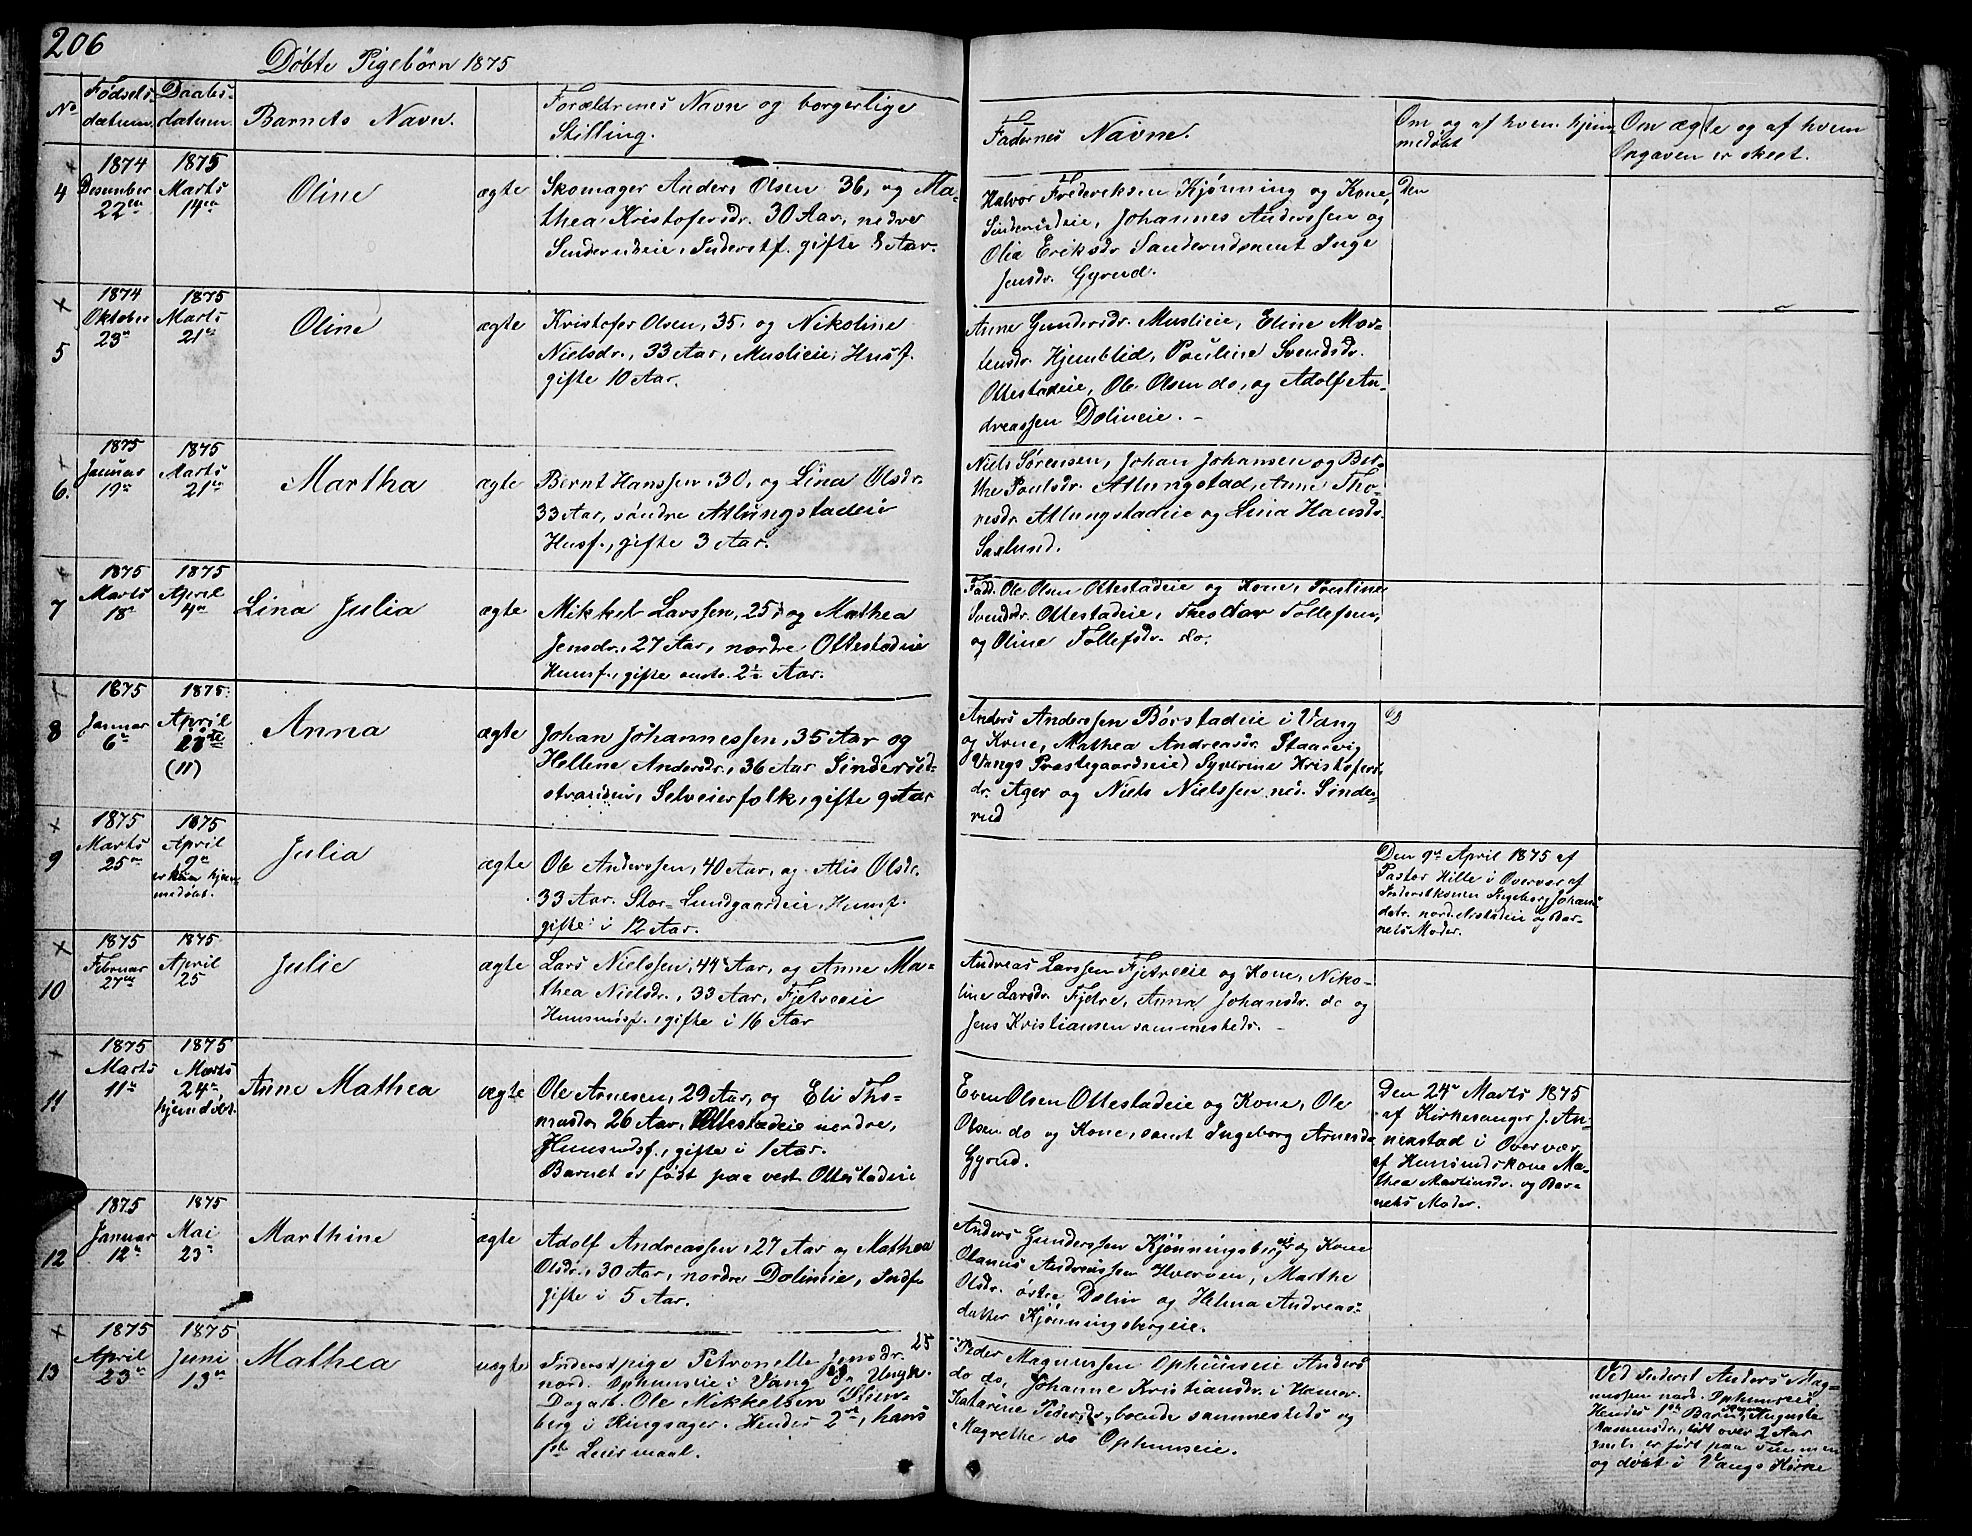 206
Døbte Pigebørn 1875
No
Fødsels-
datum.
Daabs-
datum.
Barnets Navn.
Forældrenes Navn og borgerlige
Stilling.
Fadernes Navne.
Om og af hvem hjem-
medøbt
Om ægte og af hvem
Opgaven er skeet.
4
1874
Desember
22de
1875
Marts
14de
Oline
ægte
Skomager Anders Olsen 36, og Ma-
thea Kristofersdr. 30 Aar, nedre
Sinderudeie, Inderstf. gifte 8 Aar.
Halvor Frederiksen Kjønning og Kone,
Sinderudeie, Johannes Anderssen og
Olia Eriksdr Sanderud samt Inge
Jensdr. Gyrud.
Den
5
1874
Oktober
23de
1875
Marts
21de
Oline
ægte
Kristofer Olsen, 35, og Nikoline
Nielsdr., 33 Aar, Muslieie, Husf.
gifte 10 Aar.
Anne Gundersdr. Muslieie, Eline Mor-
tensdr. Hjemblid, Pauline Svendsdr.
Ottestadeie, Ole Olsen do, og Adolf An-
dreassen Dolineie. -
6.
1875
Januar
19de
1875
Marts
21de
Martha
ægte
Bernt Hanssen, 30, og Lina Olsdr.
33 Aar, søndre Atlungstadeie
Husf., gifte 3 Aar.
Niels Sørensen, Johan Johansen og Ber-
the Paulsdr. Atlungstad, Anne Tho-
resdr. Atlungstadeie og Lina Hansdr.
Saxlund.
7
1875
Marts
18de
1875
April
4de
Lina Julia
ægte
Mikkel Larssen, 25, og Mathea
Jensdr., 27 Aar, nordre Ottestadeie
Huusf., gifte omtr. 2½ Aar.
Fadd. Ole Olsen Ottestadeie og Kone, Pauline
Svendsdr. Ottestadeie, Theodor Tollefsen,
og Oline Tollefsdr. do.
8
1875
Januar
6te
1875
April
28de
(11)
Anna
ægte
Johan Johannessen, 35 Aar og
Hellene Andersdr., 36 Aar Sinderud-
stranden, Selveierfolk, gifte 9 Aar
Anders Anderssen Børstadeie i Vang
og Kone, Mathea Andreasdr. Staarvig
Vangs Præstegaardeie) Syverine Kristofers-
dr. Ager og Niels Nielssen ned. Sinde-
rud
9
1875
Marts
25de
1875
April
9de
er kun hjem-
medøbt.
Julia
ægte
Ole Anderssen, 40 Aar, og Alis Olsdr.
33 Aar. Stor-Lundgaardeie, Huusf.
gifte i 12 Aar.
Den 9de April 1875 af
Pastor Hille i Overvær af
Inderstkonen Ingeborg Johans-
datr. nord. Aristadeie og Bar-
nets Moder.
10
1875
Februar
27de
1875
April
25
Julie
ægte
Lars Nielssen, 44 Aar, og Anne Ma-
thea Nielsdr., 33 Aar, Fjetreeie
Huusmdsf., gifte i 16 Aar
Andreas Larssen Fjetreeie og Kone, Niko-
line Larsdr. Fjetre, Anna Johansdr. do og
Jens Kristiansen sammesteds. -
11
1875
Marts
11te
1875
Marts
24de
hjemdøbt.
Anne Mathea
ægte
Ole Arnesen, 29 Aar, og Eli Tho-
masdr 26 Aar, Ottestadeie nerdre,
Huusmdsf., gifte i 1 Aar.
Barnet er født paa vest. Ottestadeie
Even Olsen Ottestadeie og Kone, Ole
Olsen do og Kone, samt Ingeborg Arnesdr.
Gyrud.
Den 24de Marts 1875
af Kirkesanger J. An-
nestad i Overvær
af Huusmdskone Ma-
thea Martinsdr. og Bar-
nets Moder.
12
1875
Januar
12te
1875
Mai
23de
Marthine
ægte
Adolf Andreassen, 27 Aar og Mathea
Olsdr., 30 Aar, nordre Dolineie, Indf.
gifte i 5 Aar.
Anders Gunderssen Kjønningsberg og Kone
Olanus Andreassen Hverven, Marthe
Olsdr. østre Dolin og Helma Andreas-
datter Kjønningsbergeie.
13
1875
April
23de
1875
Juni
13de
Mathea
uægte
Inderstpige Petronelle Jensdr. 25
nord. Ophuuseie i Vang og Ungk.
Dagarb. Ole Mikkelsen Steen-
berg i Ringsager. Hendes 2det, hans
1ste Leiermaal.
Peder Magnussen Ophuuseie Anders
do do, Johanne Kristiansdr. i Hamar.
Katarine Pedersdr., boende sammesteds og
Magrethe do Ophuuseie.
Ved Inderst Anders Mag-
nussen nord. Ophuuseie.
Hendes 1ste Barn, Augusta
Rasmusdr., født over 2 Aar
gml. er født paa Timmen
og døbt i Vangs Kirke